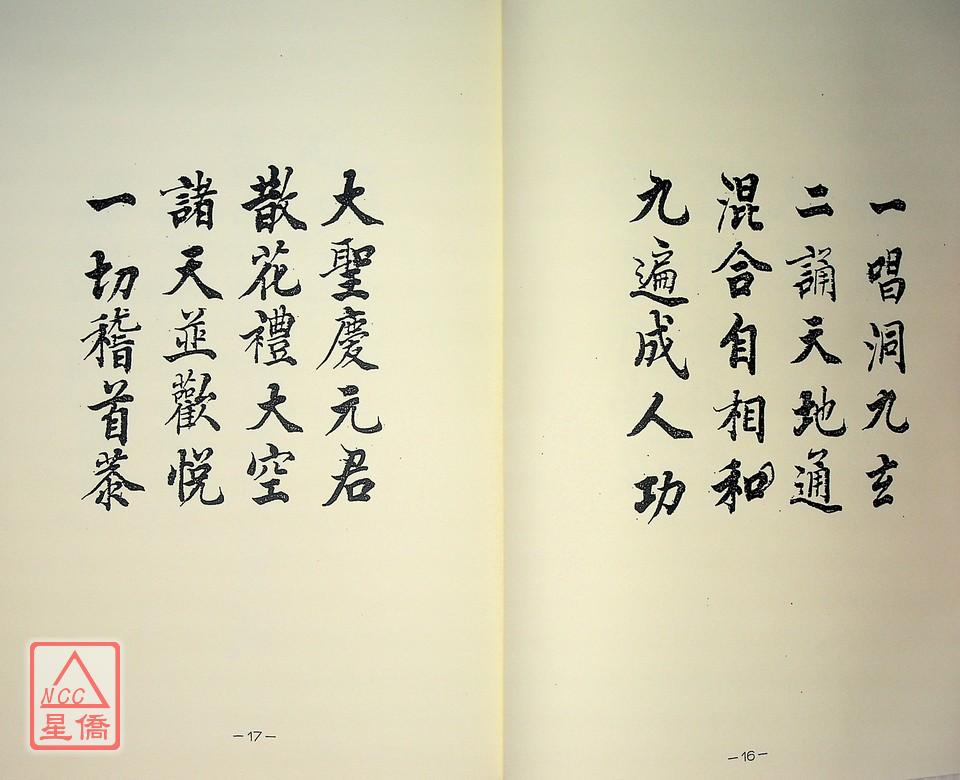 一唱洞九玄
二誦天地通
混合自相和
九遍成人功
-16-
大聖慶元君
散花禮大空
諸天並歡悅
一切稽首恭
-17-
NCC
星僑